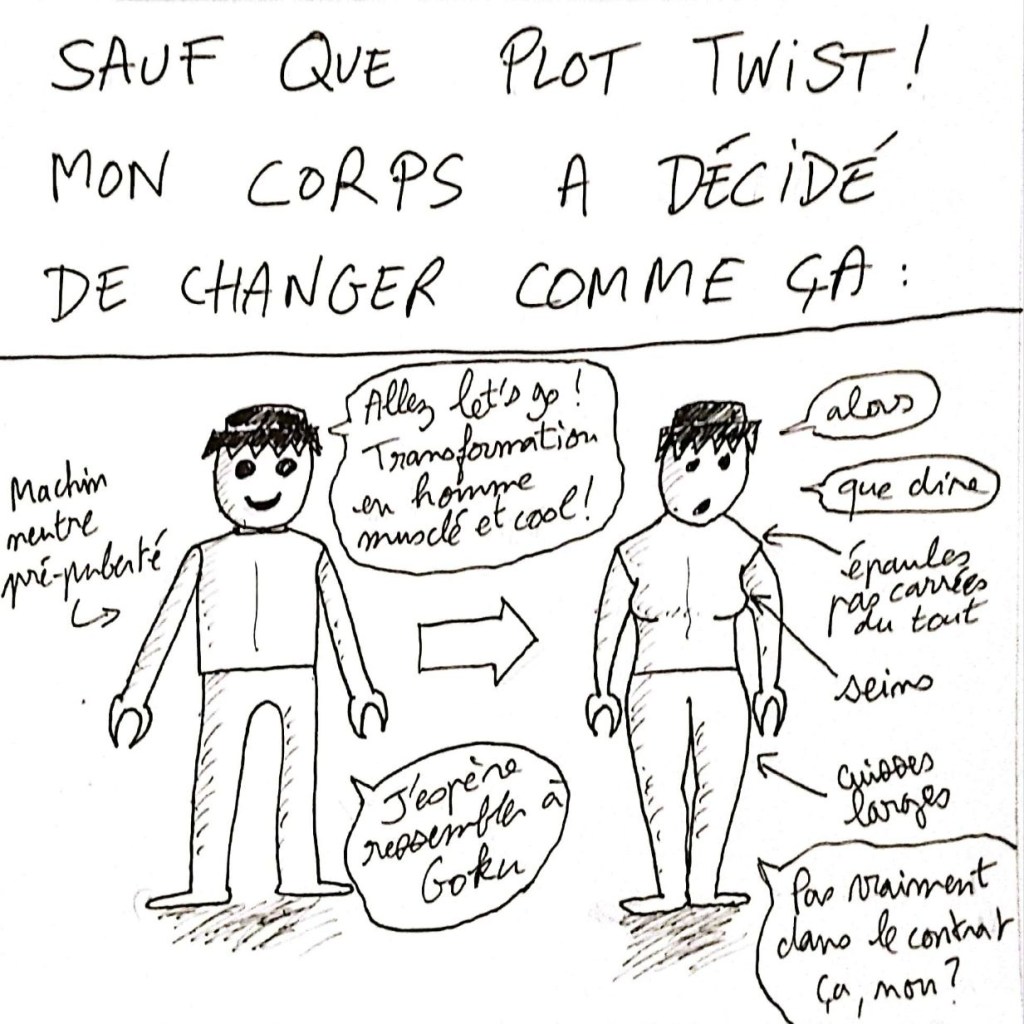 SAUF QUE PLOT TWIST!
MON CORPS A DÉCIDÉ
DE CHANGER COMME ÇA :
Machin
neutre
pré-puberté
Allez let's go !
Transformation
en homme
musclé et cool !
J'espère
ressembler à
Goku
alors
que dire
épaules
pas carrées
du tout
seins
cuisses
larges
Pas vraiment
dans le contrat
ça, non ?